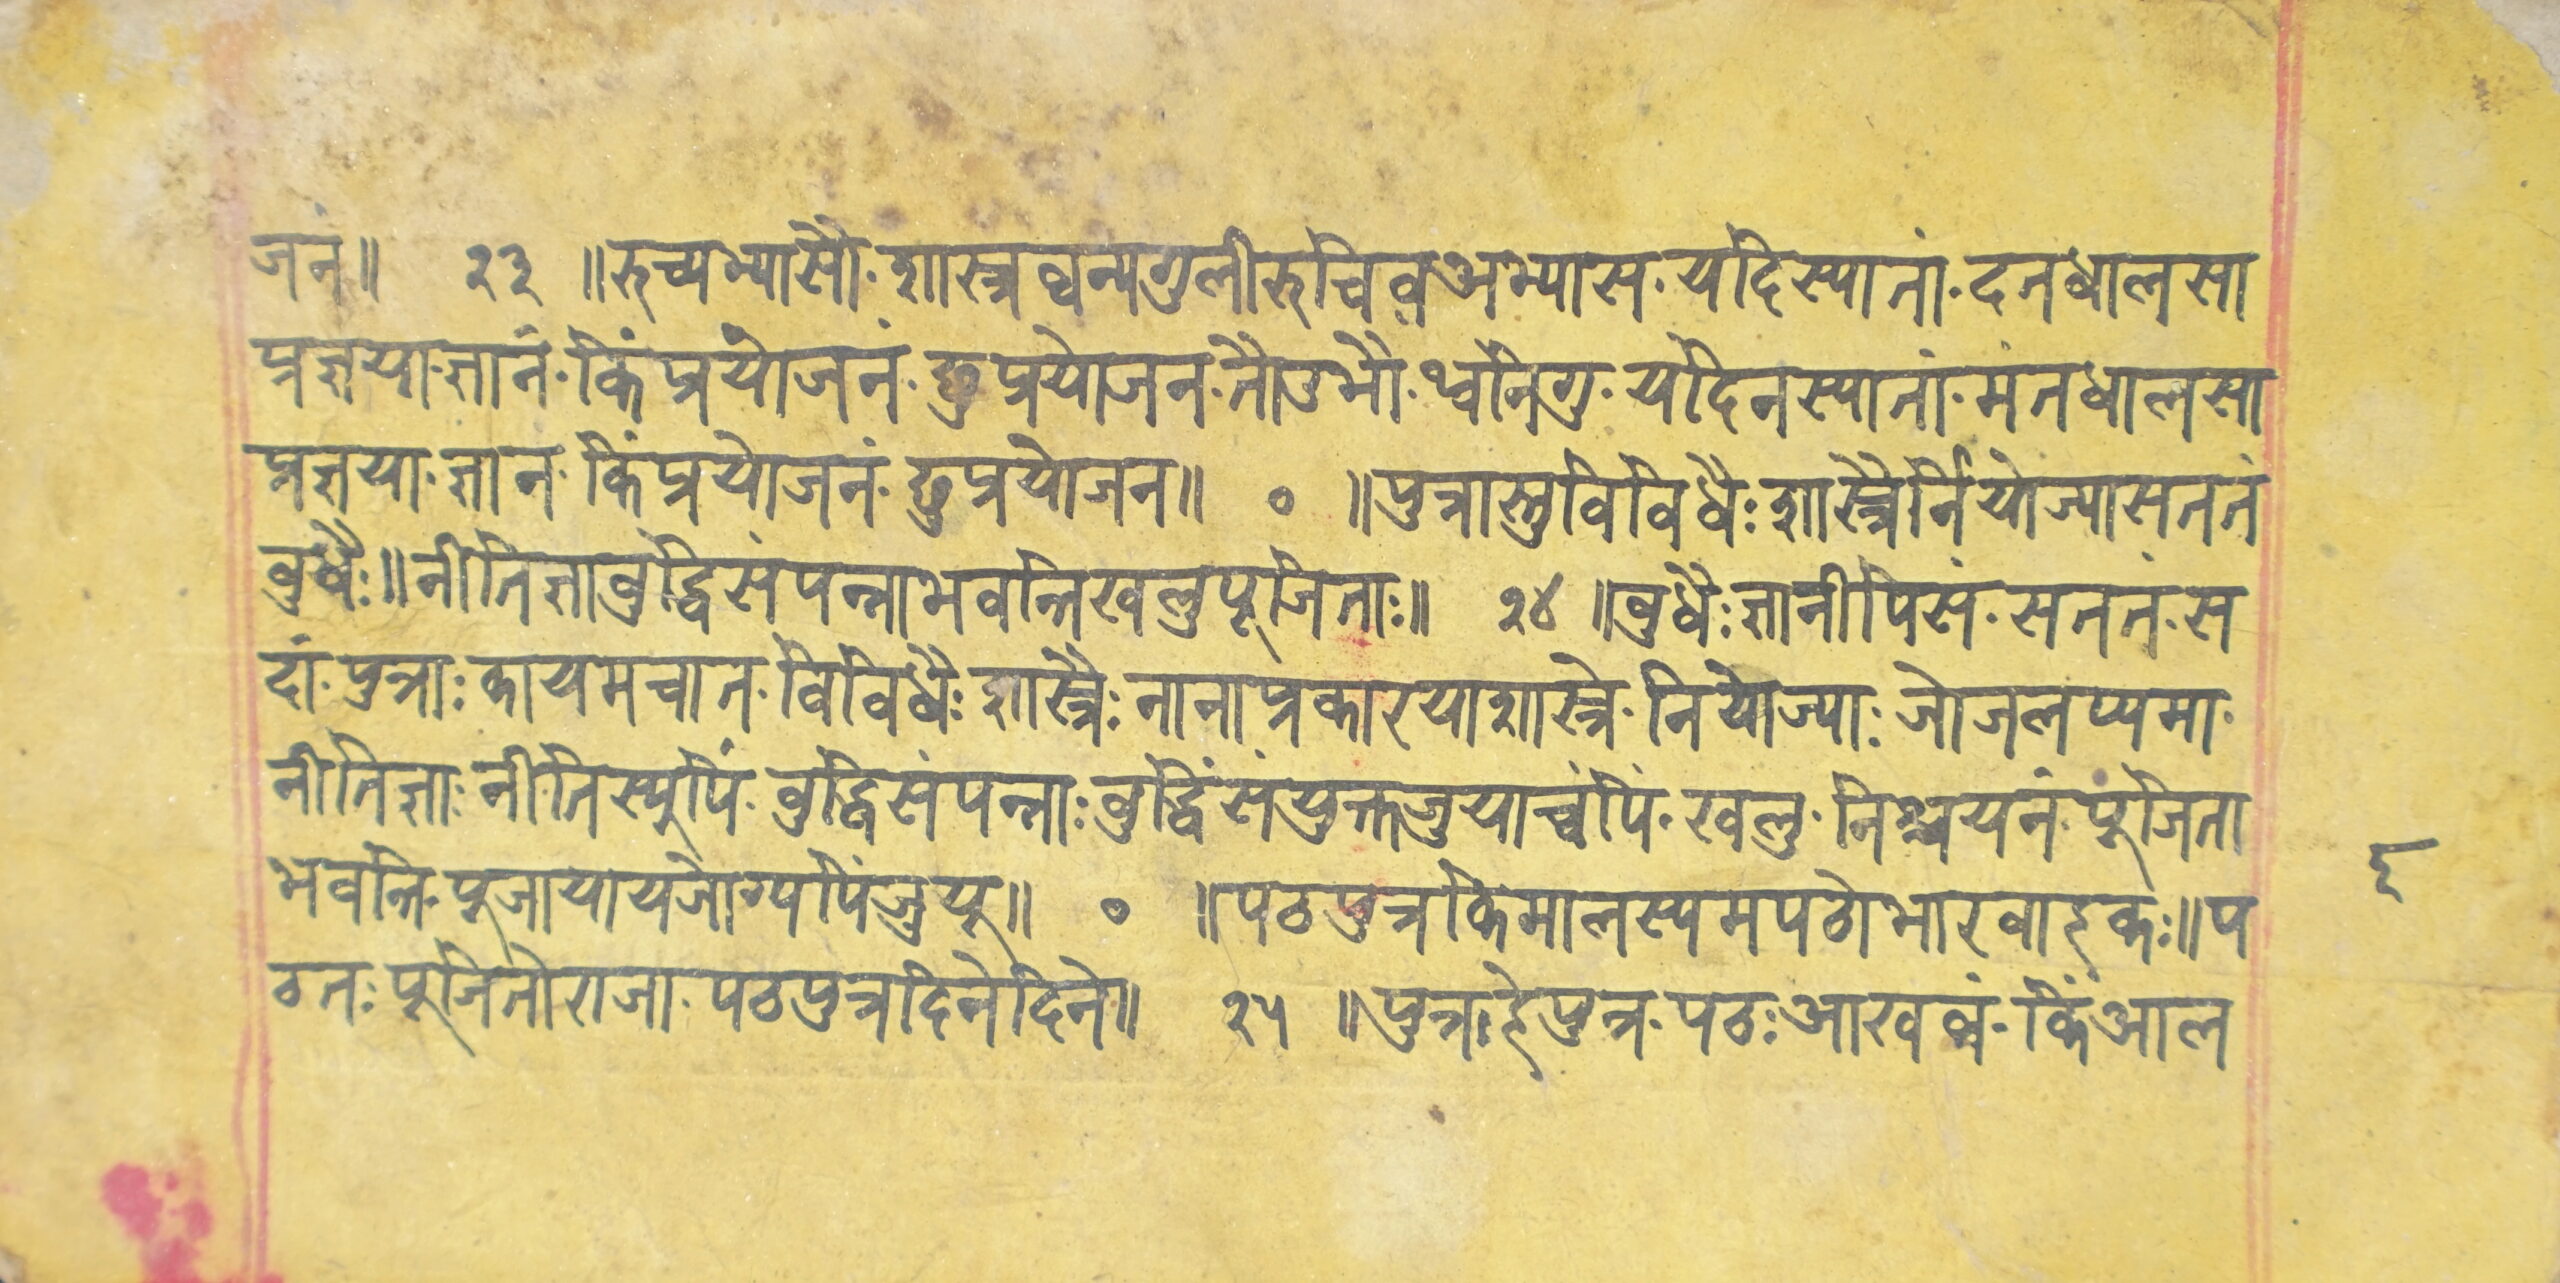 जनं॥ २३ ॥रुच्यभ्यासौ· शास्त्रव्वन्यगुलीरुचिव्रअभ्यास· यदिस्यानां· दनधालसा
प्रज्ञया·ज्ञानं· किंप्रयोजनं· छुप्रयोजन·तौउभौ· थ्वनिगु· यदिनस्यानां· मंनधालसा
प्रज्ञया·ज्ञान· किंप्रयोजनं· छुप्रयोजन॥ ० ॥पुत्रास्तुविविधैः शास्त्रैर्नियोज्यासततं
वुधैः॥नीतिज्ञावुद्धिसंपन्नाभवन्तिखलुपूजिताः॥ २४ ॥वुधैः ज्ञानीपिसं· सततं· स
दां· पुत्राः कायमचात· विविधैः शास्त्रैः नानाप्रकारयाशास्त्रे· नियोज्याः जोजलप्यमा·
नीतिज्ञाः नीतिस्यूपिं· वुद्धिसंपन्नाः वुद्धिंसंयुक्तजुयाच्वंपिं· खलु· निश्चयनं· पूजिता
भवन्ति· पूजायायजोग्यपिंजुयू॥ ० ॥पठपुत्रकिमालस्यमपठोभारवाहकः॥प
ठतः पूजितोराजा· पठपुत्रदिनेदिने॥ २५ ॥पुत्र।हेपुत्र· पठः आखव्वं· किंआल
६